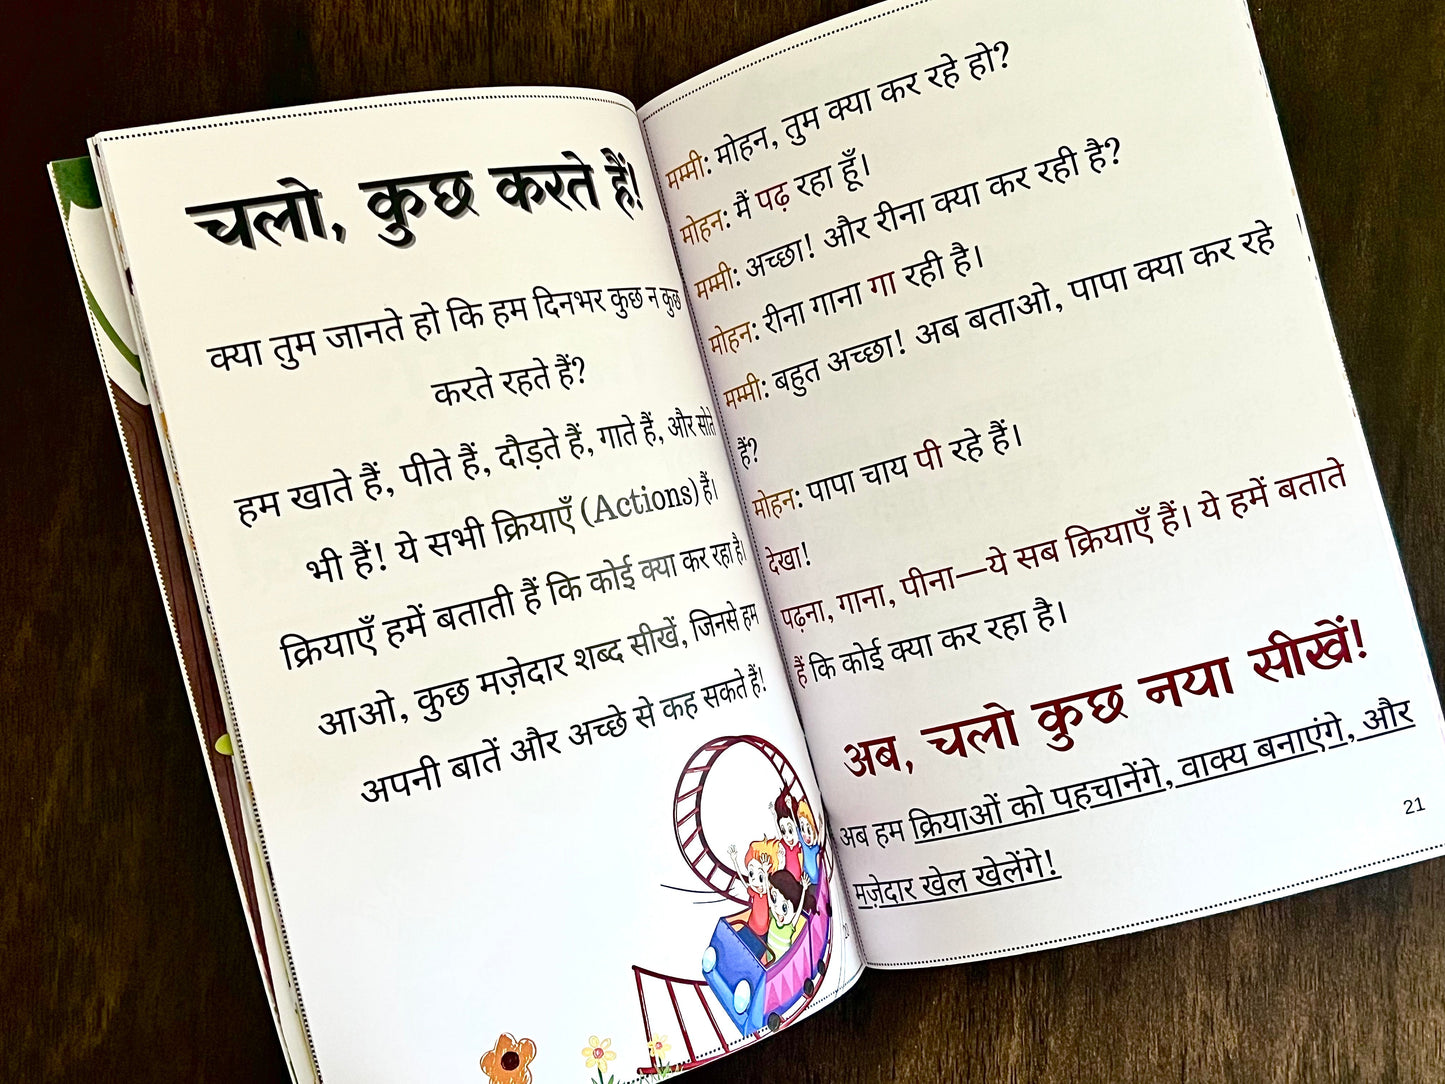 चलो, कुछ करते हैं!
क्या तुम जानते हो कि हम दिनभर कुछ न कुछ
करते रहते हैं?
हम खाते हैं, पीते हैं, दौड़ते हैं, गाते हैं, और सोते
भी हैं! ये सभी क्रियाएँ (Actions) हैं।
क्रियाएँ हमें बताती हैं कि कोई क्या कर रहा है।
आओ, कुछ मज़ेदार शब्द सीखें, जिनसे हम
अपनी बातें और अच्छे से कह सकते हैं!
20
मम्मी: मोहन, तुम क्या कर रहे हो?
मोहन: मैं पढ़ रहा हूँ।
मम्मी: अच्छा! और रीना क्या कर रही है?
मोहन: रीना गाना गा रही है।
मम्मी: बहुत अच्छा! अब बताओ, पापा क्या कर रहे
हैं?
मोहन: पापा चाय पी रहे हैं।
देखा!
पढ़ना, गाना, पीना—ये सब क्रियाएँ हैं। ये हमें बताते
हैं कि कोई क्या कर रहा है।
अब, चलो कुछ नया सीखें!
अब हम क्रियाओं को पहचानेंगे, वाक्य बनाएंगे, और
मज़ेदार खेल खेलेंगे!
21